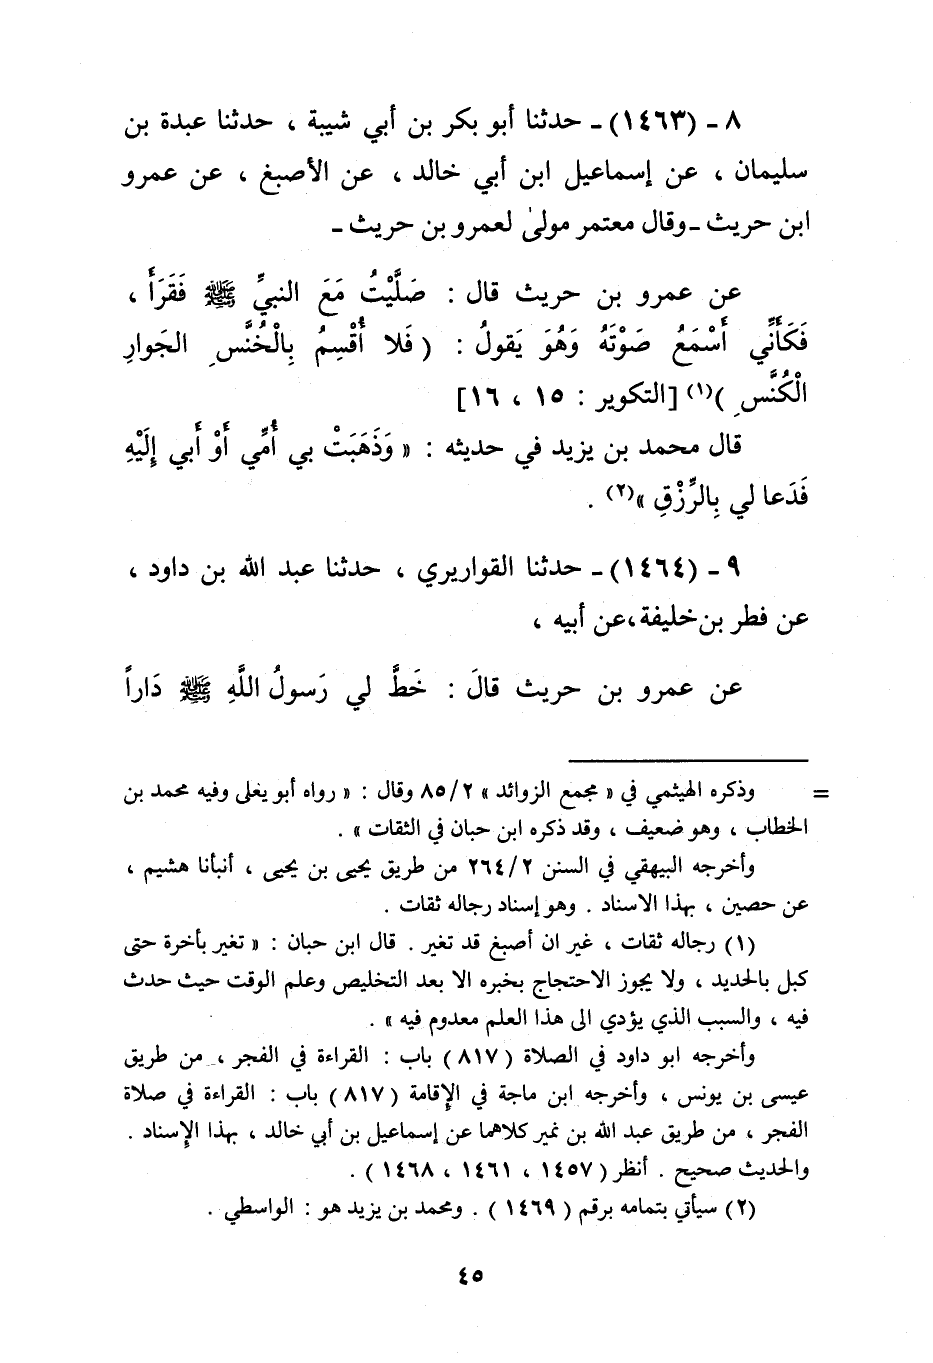 ٨ - (١٤٦٣) - حدثنا أبو بكر بن أبي شيبة ، حدثنا عبدة بن
سليمان ، عن إسماعيل ابن أبي خالد ، عن الأصبغ ، عن عمرو
ابن حريث - وقال معتمر مولىٰ لعمرو بن حريث -
عن عمرو بن حريث قال : صَلَّيْتُ مَعَ النبيِّ ﷺ فَقَرَأَ ،
فَكَأَنِّي أَسْمَعُ صَوْتَهُ وَهُوَ يَقولُ : ( فَلا أُقْسِمُ بِالْخُنَّسِ الجَوارِ
الْكُنَّسِ )(١) [التكوير : ١٥ ، ١٦]
قال محمد بن يزيد في حديثه : « وَذَهَبَتْ بي أُمِّي أَوْ أَبي إِلَيْهِ
فَدَعا لي بِالرِّزْقِ »(٢) .
٩ - (١٤٦٤) - حدثنا القواريري ، حدثنا عبد الله بن داود ،
عن فطر بن خليفة، عن أبيه ،
عن عمرو بن حريث قالَ : خَطَّ لي رَسولُ اللَّهِ ﷺ دَاراً
= وذكره الهيثمي في « مجمع الزوائد » ٨٥/٢ وقال : « رواه أبو يعلى وفيه محمد بن
الخطاب ، وهو ضعيف ، وقد ذكره ابن حبان في الثقات » .
وأخرجه البيهقي في السنن ٢٦٤/٢ من طريق يحيى بن يحيى ، أنبأنا هشيم ،
عن حصين ، بهذا الاسناد . وهو إسناد رجاله ثقات .
(١) رجاله ثقات ، غير ان أصبغ قد تغير . قال ابن حبان : « تغير بأخرة حتى
كبل بالحديد ، ولا يجوز الاحتجاج بخبره الا بعد التخليص وعلم الوقت حيث حدث
فيه ، والسبب الذي يؤدي الى هذا العلم معدوم فيه » .
وأخرجه ابو داود في الصلاة (٨١٧) باب : القراءة في الفجر ، من طريق
عيسى بن يونس ، وأخرجه ابن ماجة في الإقامة (٨١٧) باب : القراءة في صلاة
الفجر ، من طريق عبد الله بن نمير كلاهما عن إسماعيل بن أبي خالد ، بهذا الإسناد .
والحديث صحيح . أنظر (١٤٥٧ ، ١٤٦١ ، ١٤٦٨) .
(٢) سيأتي بتمامه برقم (١٤٦٩) . ومحمد بن يزيد هو : الواسطي .
٤٥